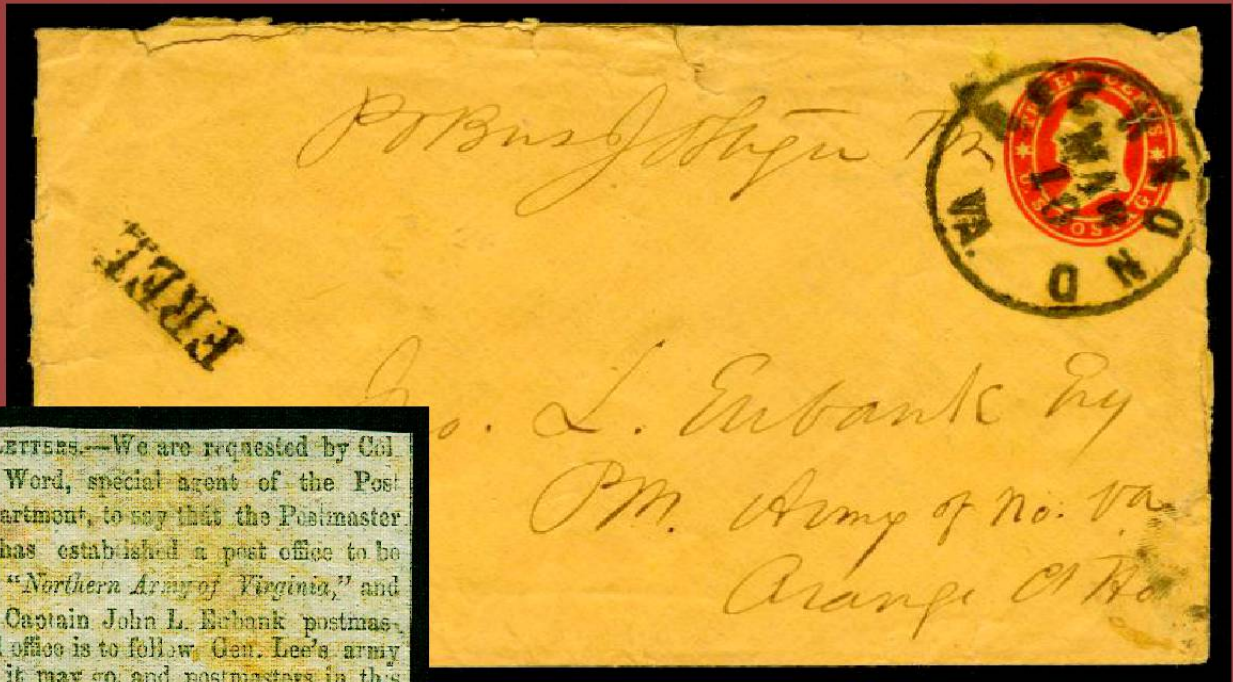 P O Bus J O Steger PM
RICHMOND VA.
MAR
19
THREE CENTS
U.S. POSTAGE
FREE
Jno. L. Eubank Esq
PM. Army of No. Va
Orange Ct Ho
LETTERS.—We are requested by Col
Word, special agent of the Post
artment, to say that the Postmaster
has established a post office to be
"Northern Army of Virginia," and
Captain John L. Eubank postmas-
office is to follow Gen. Lee's army
it may go, and postmasters in this